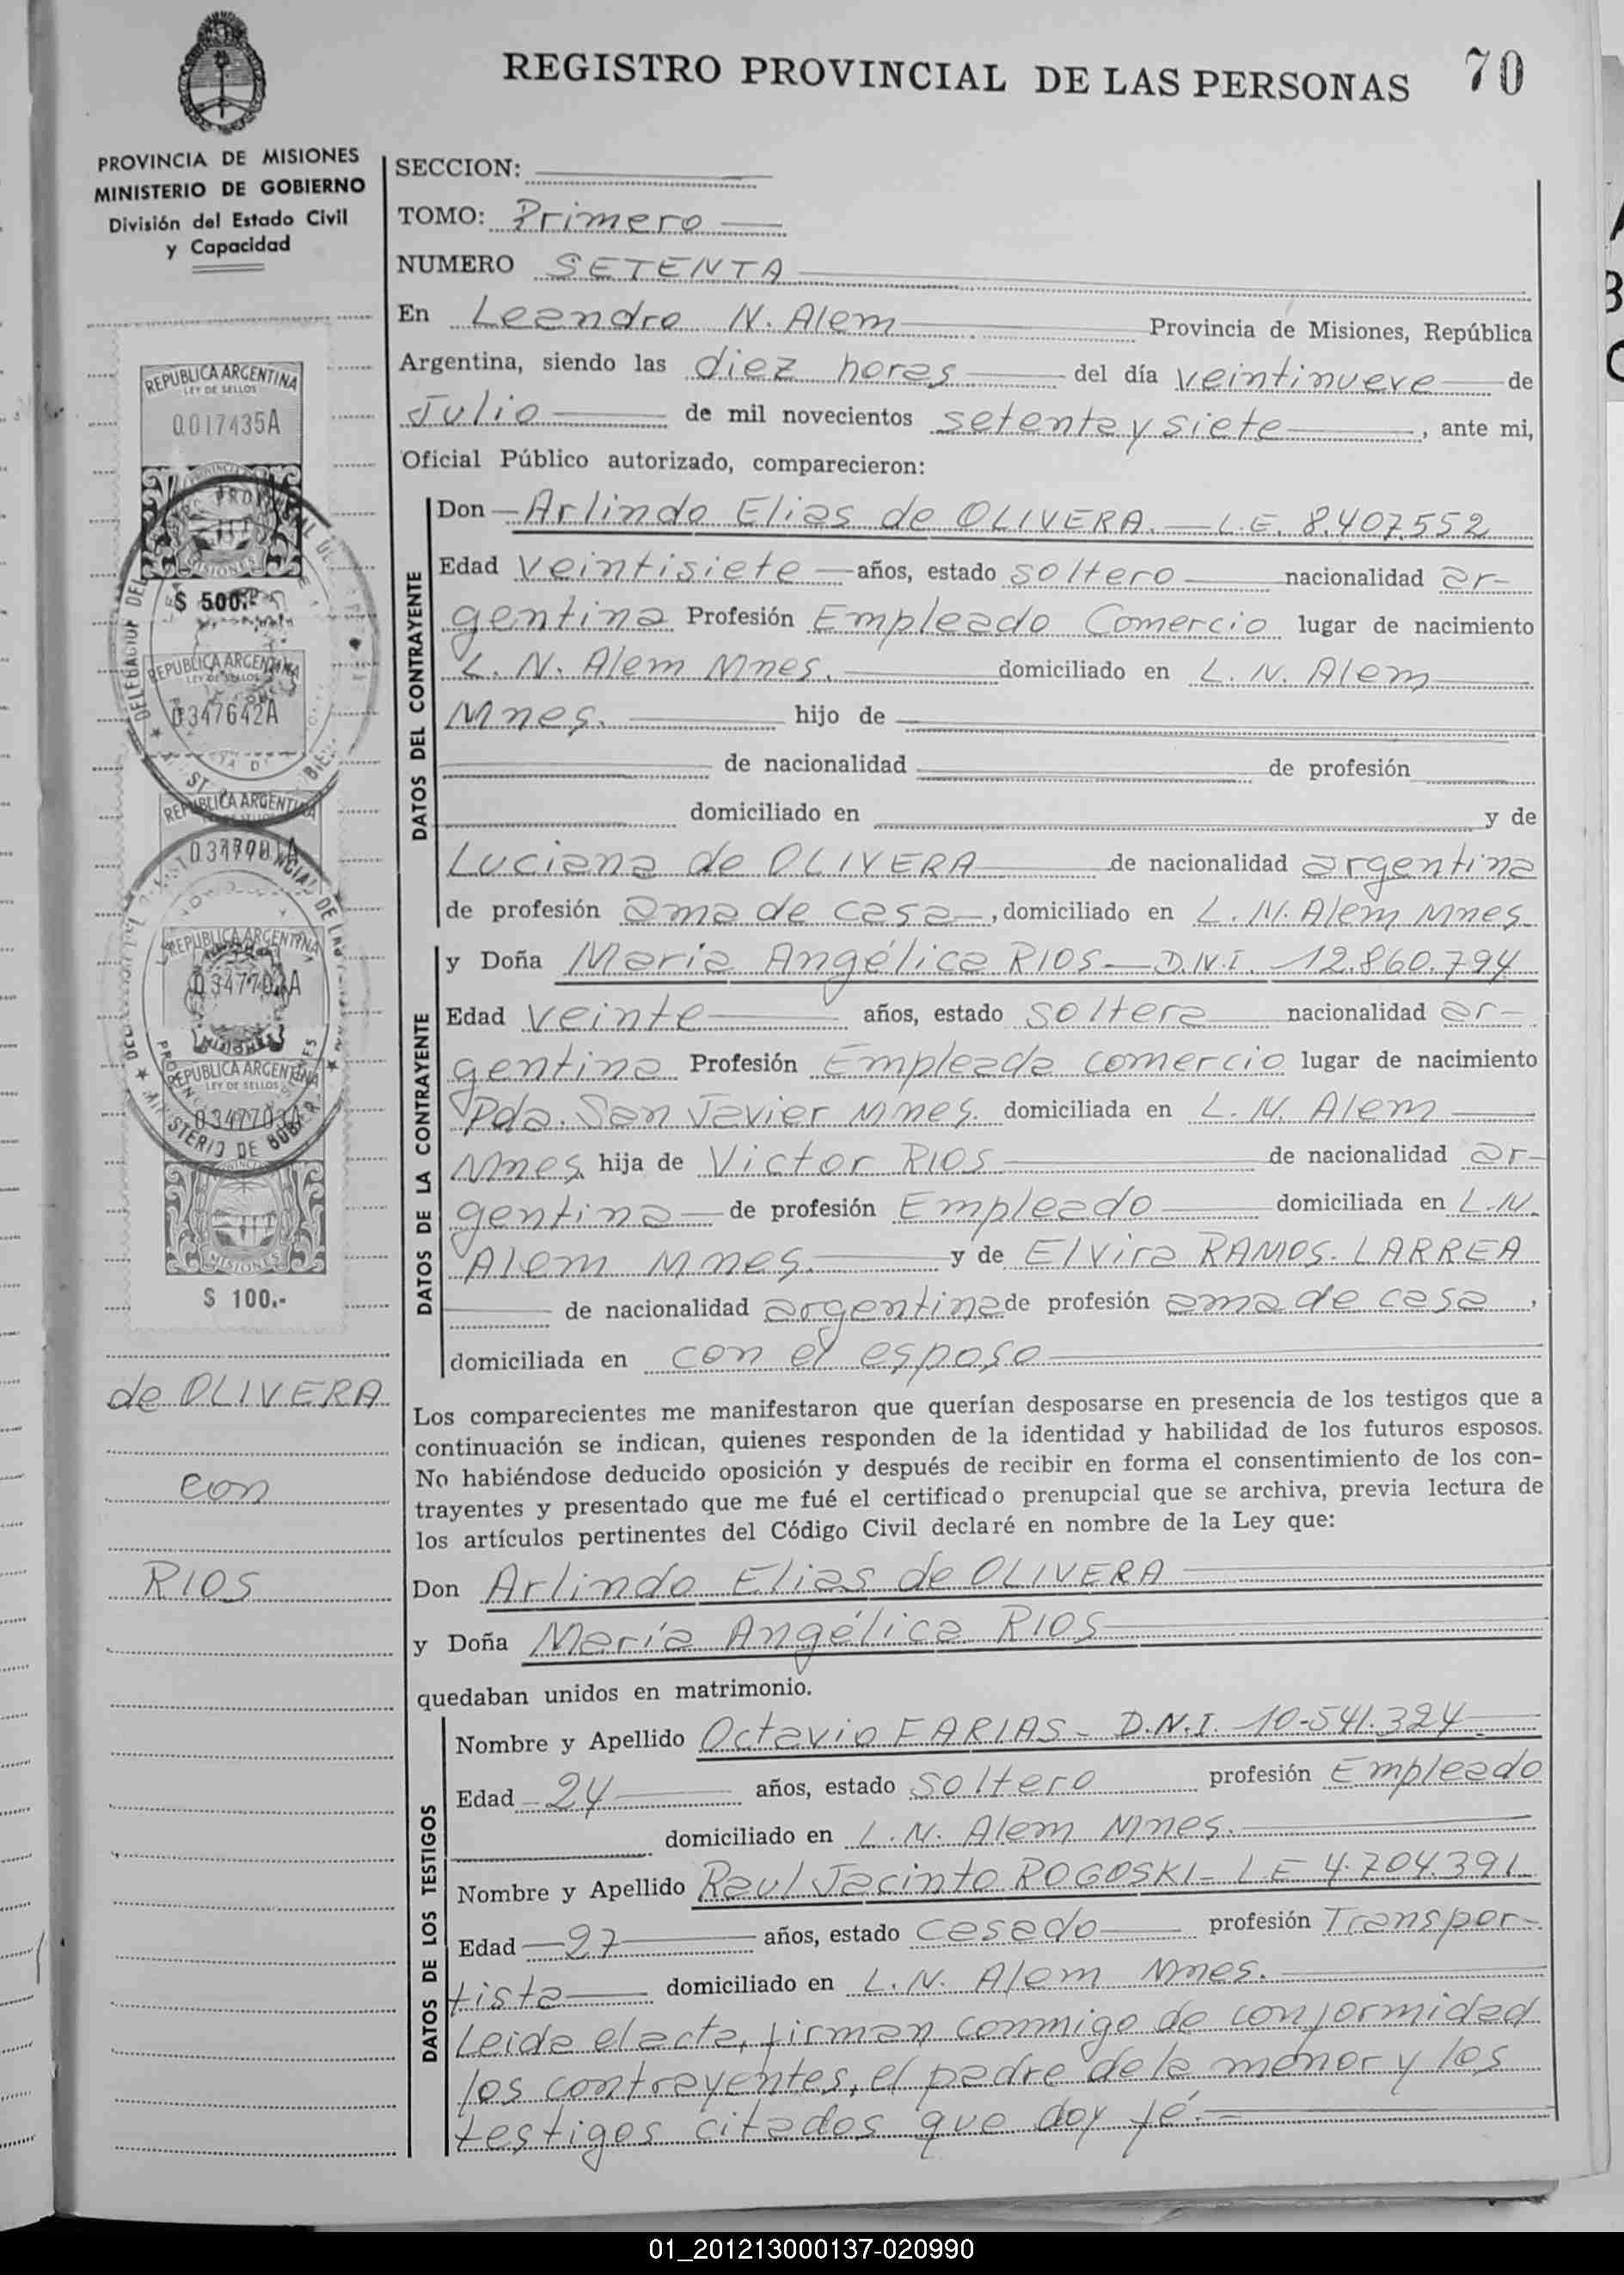 REGISTRO PROVINCIAL DE LAS PERSONAS 70
PROVINCIA DE MISIONES
MINISTERIO DE GOBIERNO
División del Estado Civil
y Capacidad
SECCION:
TOMO: Primero
NUMERO SETENTA
En Leandro N. Alem Provincia de Misiones, República
Argentina, siendo las diez horas del día veintinueve de
Julio de mil novecientos setenta y siete, ante mi,
Oficial Público autorizado, comparecieron:
DATOS DEL CONTRAYENTE
Don Arlindo Elias de OLIVERA. L.E. 8.407.552
Edad veintisiete años, estado soltero nacionalidad ar-
gentina Profesión Empleado Comercio lugar de nacimiento
L. N. Alem Mnes. domiciliado en L. N. Alem
Mnes. hijo de
de nacionalidad de profesión
domiciliado en y de
Luciana de OLIVERA de nacionalidad argentina
de profesión ama de casa, domiciliado en L. N. Alem Mnes.
DATOS DE LA CONTRAYENTE
y Doña Maria Angélica RIOS D.N.I. 12.860.794
Edad veinte años, estado soltera nacionalidad ar-
gentina Profesión Empleada comercio lugar de nacimiento
Pda. San Javier Mnes. domiciliada en L. N. Alem
Mnes. hija de Victor RIOS de nacionalidad ar-
gentina de profesión Empleado domiciliada en L.N.
Alem Mnes. y de Elvira RAMOS LARREA
de nacionalidad argentina de profesión ama de casa,
domiciliada en con el esposo
Los comparecientes me manifestaron que querían desposarse en presencia de los testigos que a
continuación se indican, quienes responden de la identidad y habilidad de los futuros esposos.
No habiéndose deducido oposición y después de recibir en forma el consentimiento de los con-
trayentes y presentado que me fué el certificado prenupcial que se archiva, previa lectura de
los artículos pertinentes del Código Civil declaré en nombre de la Ley que:
Don Arlindo Elias de OLIVERA
y Doña María Angélica RIOS
quedaban unidos en matrimonio.
DATOS DE LOS TESTIGOS
Nombre y Apellido Octavio FARIAS - D.N.I. 10-541.324
Edad 24 años, estado soltero profesión Empleado
domiciliado en L. N. Alem Mnes.
Nombre y Apellido Raul Jacinto ROGOSKI - L E 4.704.391
Edad 27 años, estado casado profesión Transpor-
tista domiciliado en L. N. Alem Mnes.
Leida el acta, firman conmigo de conformidad
los contrayentes, el padre de la menor y los
testigos citados que doy fé.
REPUBLICA ARGENTINA
LEY DE SELLOS
0017435A
MISIONES
$ 500.-
REPUBLICA ARGENTINA
LEY DE SELLOS
0347642A
REPUBLICA ARGENTINA
REPUBLICA ARGENTINA
MISIONES
REPUBLICA ARGENTINA
LEY DE SELLOS
MINISTERIO DE
MISIONES
$ 100.-
de OLIVERA
con
RIOS
01_201213000137-020990